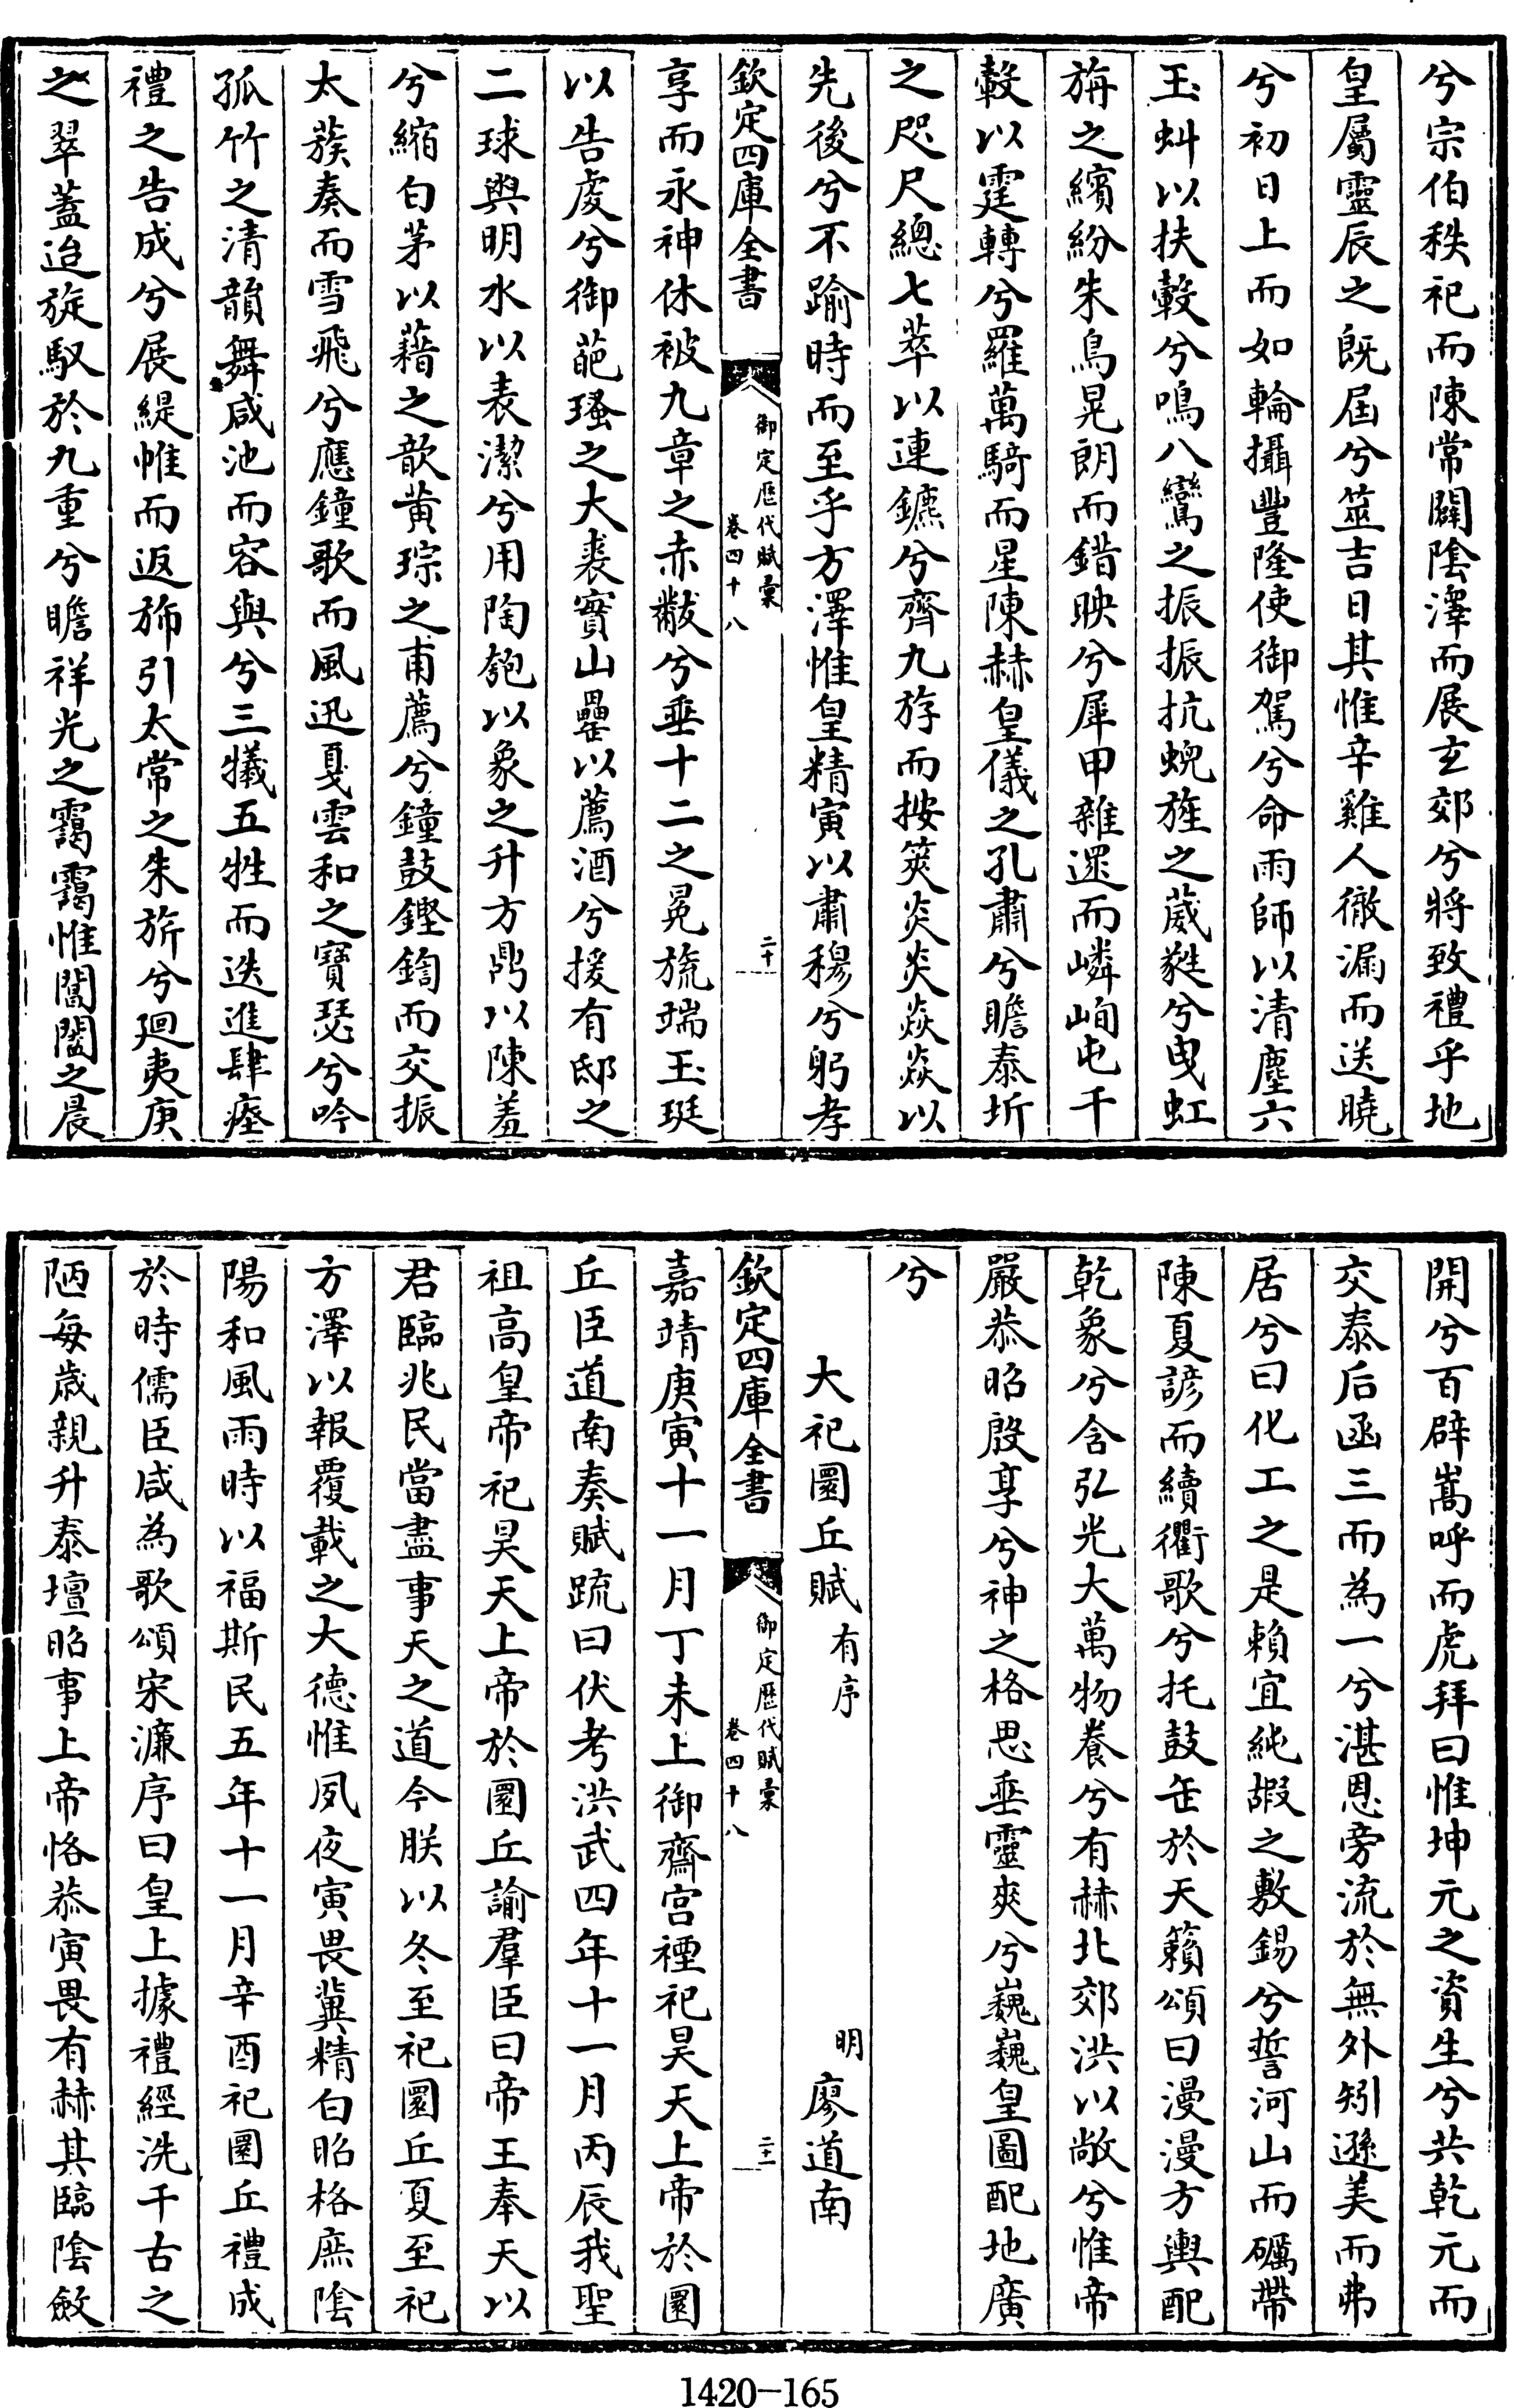 兮宗伯秩祀而陳常闢陰澤而展玄郊兮將致禮乎地
皇屬靈辰之既届兮筮吉日其惟辛雞人徹漏而送曉
兮初日上而如輪攝豐隆使御駕兮命雨師以清塵六
玉虯以扶轂兮鳴八鸞之振振抗蜺旌之葳蕤兮曳虹
旃之繽紛朱鳥晃朗而錯映兮犀甲雜遝而嶙峋屯千
轂以霆轉兮羅萬騎而星陳赫皇儀之孔肅兮瞻泰圻
之咫尺總七萃以連鑣兮齊九斿而按筴炎炎焱焱以
先後兮不踰時而至乎方澤惟皇精寅以肅穆兮躬孝
欽定四庫全書
御定歷代賦彙
卷四十八
二十
享而永神休被九章之赤黻兮垂十二之冕旒端玉珽
以告虔兮御葩瑵之大裘實山罍以薦酒兮援有邸之
二球與明水以表潔兮用陶匏以象之升方鼎以陳羞
兮縮白茅以藉之歆黃琮之甫薦兮鐘鼓鏗鍧而交振
太蔟奏而雪飛兮應鐘歌而風迅戛雲和之寶瑟兮吟
孤竹之清韻舞咸池而容與兮三犧五牲而迭進肆瘞
禮之告成兮展緹帷而返斾引太常之朱旂兮廻夷庚
之翠蓋迨旋馭於九重兮瞻祥光之靄靄惟閶闔之晨
開兮百辟嵩呼而虎拜曰惟坤元之資生兮共乾元而
交泰后函三而為一兮湛恩旁流於無外矧遜美而弗
居兮曰化工之是賴宜純嘏之敷錫兮誓河山而礪帶
陳夏諺而續衢歌兮托鼓缶於天籟頌曰漫漫方輿配
乾象兮含弘光大萬物養兮有赫北郊洪以敞兮惟帝
嚴恭昭殷享兮神之格思垂靈爽兮巍巍皇圖配地廣
兮
大祀圜丘賦有序
明廖道南
欽定四庫全書
御定歷代賦彙
卷四十八
二十一
嘉靖庚寅十一月丁未上御齋宮禋祀昊天上帝於圜
丘臣道南奏賦疏曰伏考洪武四年十一月丙辰我聖
祖高皇帝祀昊天上帝於圜丘諭羣臣曰帝王奉天以
君臨兆民當盡事天之道今朕以冬至祀圜丘夏至祀
方澤以報覆載之大德惟夙夜寅畏冀精白昭格庶陰
陽和風雨時以福斯民五年十一月辛酉祀圜丘禮成
於時儒臣咸為歌頌宋濂序曰皇上據禮經洗千古之
陋每歲親升泰壇昭事上帝恪恭寅畏有赫其臨陰斂
1420-165